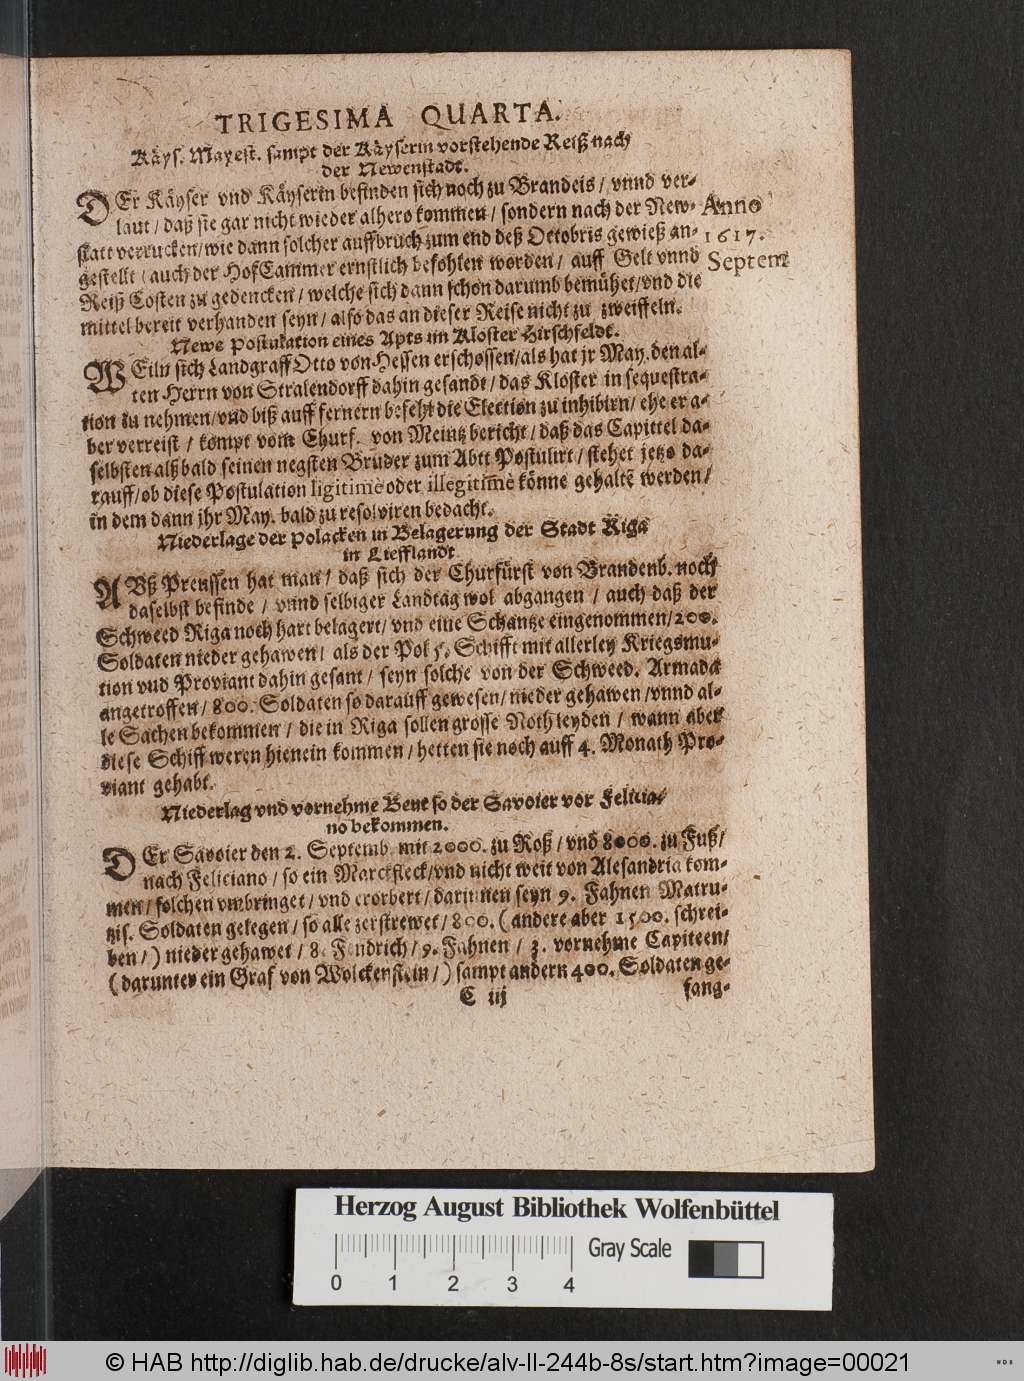 TRIGESIMA QUARTA.
Käys. Mayest. sampt der Käyserin vorstehende Reiß nach
der Newenstadt.
DEr Käyser vnd Käyserin befinden sich noch zu Brandeis / vnnd ver-
laut / daß sie gar nicht wieder alhero kommen / sondern nach der New-
statt verrucken / wie dann solcher auffbruch zum end deß Octobris gewieß an-
gestellt / auch der HofCammer ernstlich befohlen worden / auff Gelt vnnd
Reiß Costen zu gedencken / welche sich dann schon darumb bemühet / vnd die
mittel bereit verhanden seyn / also das an dieser Reise nicht zu zweiffeln.
Anno
1617.
Septem
Newe Postulation eines Apts im Kloster Hirschfeldt.
WEiln sich Landgraff Otto von Hessen erschossen / als hat jr May. den al-
ten Herrn von Stralendorff dahin gesandt / das Kloster in sequestra-
tion zu nehmen / vnd biß auff fernern befehl die Election zu inhibirn / ehe er a-
ber verreist / kompt vom Churf. von Meintz bericht / daß das Capittel da-
selbsten alßbald seinen negsten Bruder zum Abtt Postulirt / stehet jetzo da-
rauff / ob diese Postulation ligitimè oder illegitimè könne gehaltē werden /
in dem dann jhr May. bald zu resolviren bedacht.
Niederlage der Polacken in Belagerung der Stadt Riga
in Liefflandt
AVß Preussen hat man / daß sich der Churfürst von Brandenb. noch
daselbst befinde / vnnd selbiger Landtag wol abgangen / auch daß der
Schweed Riga noch hart belagert / vnd eine Schantze eingenommen / 200.
Soldaten nieder gehawen / als der Pol 5. Schifft mit allerley Kriegsmu-
tion vnd Proviant dahin gesant / seyn solche von der Schweed. Armada
angetroffen / 800. Soldaten so darauff gewesen / nieder gehawen / vnnd al-
le Sachen bekommen / die in Riga sollen grosse Noth leyden / wann aber
diese Schiff weren hienein kommen / hetten sie noch auff 4. Monath Pro-
viant gehabt.
Niederlag vnd vornehme Beut so der Savoier vor Felicia-
no bekommen.
DEr Savoier den 2. Septemb. mit 2000. zu Roß / vnd 8000. zu Fuß /
nach Feliciano / so ein Marcktfleck / vnd nicht weit von Alesandria kom-
men / solchen vmbringet / vnd erorbert / darinnen seyn 9. Fahnen Matru-
tzis. Soldaten gelegen / so alle zerstrewet / 800. ( andere aber 1500. schrei-
ben / ) nieder gehawet / 8. Fendrich / 9. Fahnen / 3. vornehme Capiteen /
( darunter ein Graf von Wolckenstein / ) sampt andern 400. Soldaten ge-
C iij
fang-
Herzog August Bibliothek Wolfenbüttel
0 1 2 3 4
Gray Scale
© HAB http://diglib.hab.de/drucke/alv-ll-244b-8s/start.htm?image=00021